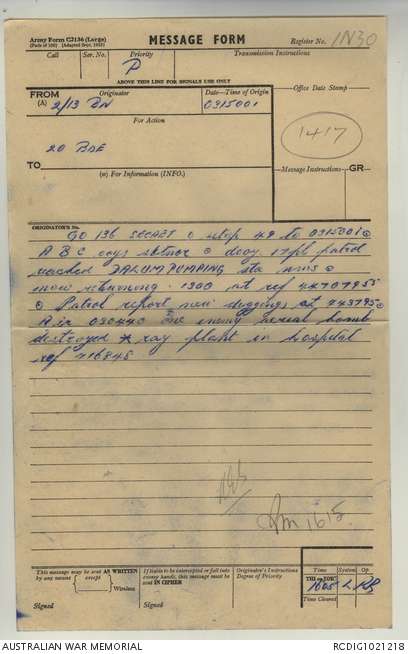 Army Form C2136 (Large)
(Pads of 100) (Adapted Sept. 1942)
MESSAGE FORM
Register No. IN30
Call
Ser. No.
Priority
P
Transmission Instructions
ABOVE THIS LINE FOR SIGNALS USE ONLY
FROM
(A)
Originator
2/13 BN
Date—Time of Origin
031500I
Office Date Stamp
For Action
1417
20 BDE
TO
(W) For Information (INFO.)
Message Instructions
GR
ORIGINATOR'S No.
GO 136 SECRET o sitrep 49 to 031500I o
A B C coys o 17 pl patrol
reached PUMPING sta
now returning. 1300 at ref
o Patrol report new diggings at 743795 o
Air one enemy aerial bomb
destroyed X ray plant in hospital
ref 716845
1615
This message may be sent AS WRITTEN
by any means
except
Wireless
If liable to be intercepted or fall into
enemy hands, this message must be
sent IN CIPHER
Originator's Instructions
Degree of Priority
Time
System
Op
THI or TOR
1605 L
Time Cleared
Signed
Signed
AUSTRALIAN WAR MEMORIAL
RCDIG1021218